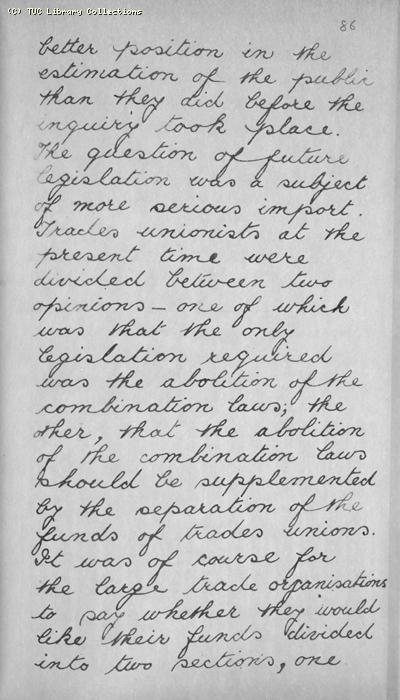 (C) TUC Library Collections
86
better position in the
estimation of the public
than they did before the
inquiry took place.
The question of future
legislation was a subject
of more serious import.
Trades unionists at the
present time were
divided between two
opinions – one of which
was that the only
legislation required
was the abolition of the
combination laws; the
other, that the abolition
of the combination laws
should be supplemented
by the separation of the
funds of trades unions.
It was of course for
the large trade organisations
to say whether they would
like their funds divided
into two sections, one